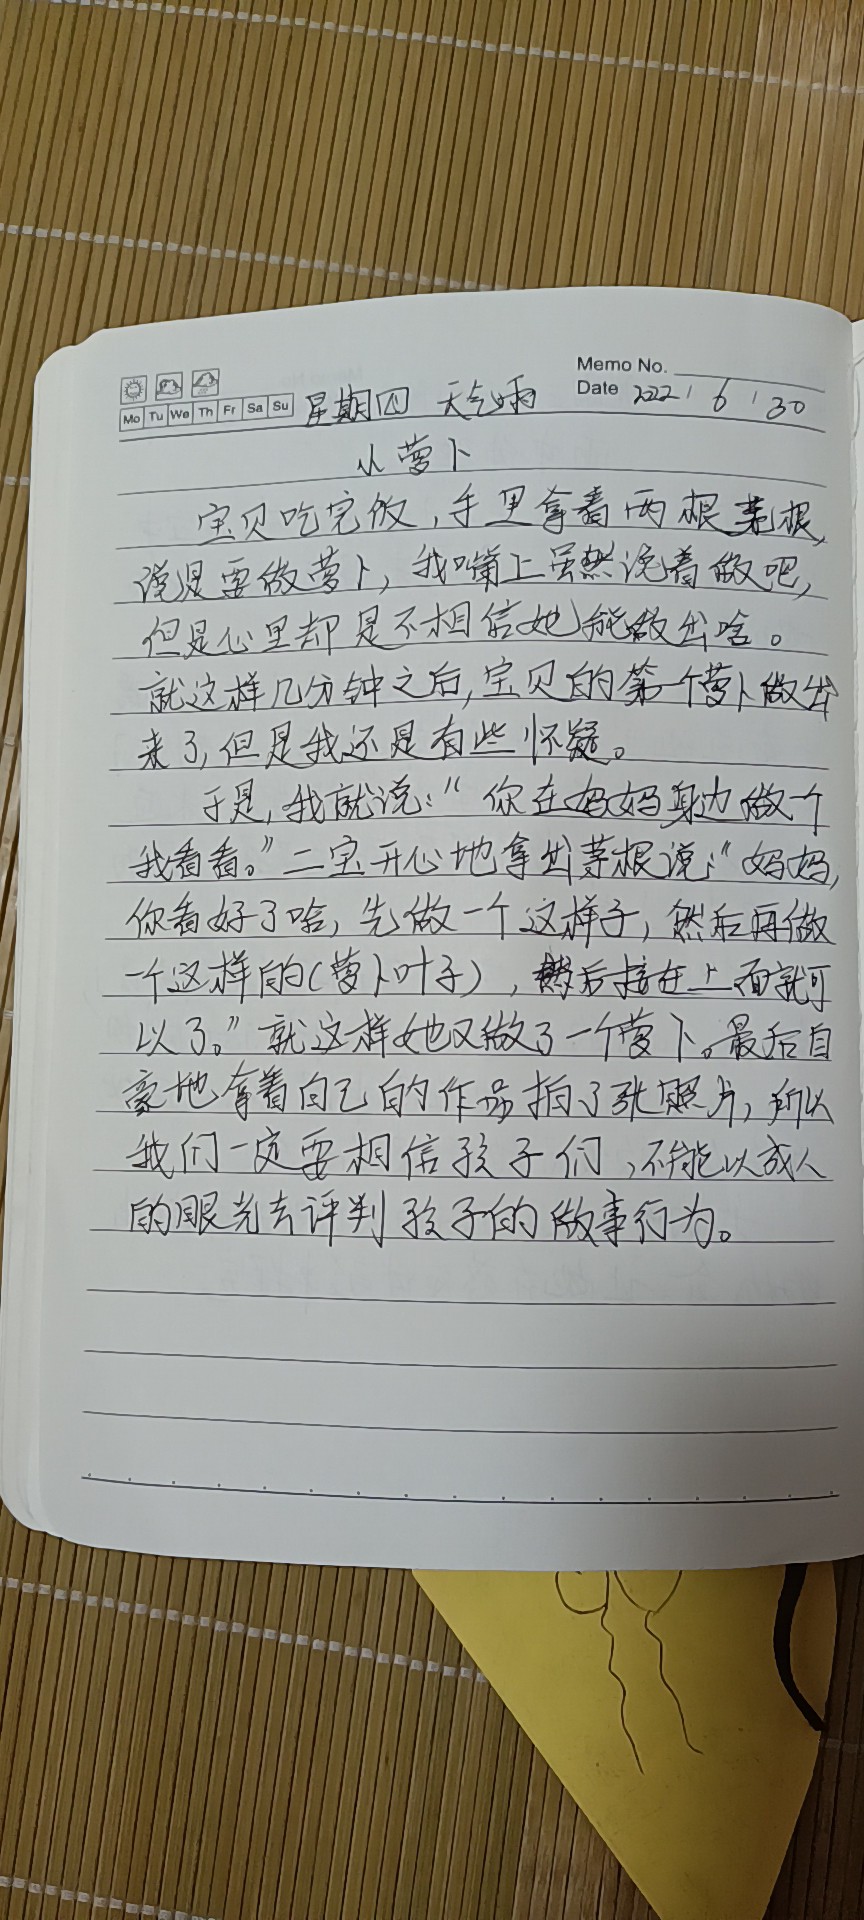 Memo No.
Mo Tu We Th Fr Sa Su 星期四 天气雨 Date 2022 / 6 / 30
小萝卜
宝贝吃完饭,手里拿着两根茅根,
说是要做萝卜,我嘴上虽然说着做吧,
但是心里却是不相信她能做出啥。
就这样几分钟之后,宝贝的第一个萝卜做出
来了,但是我还是有些怀疑。
于是,我就说:“你在妈妈身边做一个
我看看。”二宝开心地拿出茅根说:“妈妈,
你看好了啥,先做一个这样子,然后再做
一个这样的(萝卜叶子),然后接在上面就可
以了。”就这样她又做了一个萝卜。最后自
豪地拿着自己的作品拍了张照片,所以
我们一定要相信孩子们,不能以成人
的眼光去评判孩子的做事行为。